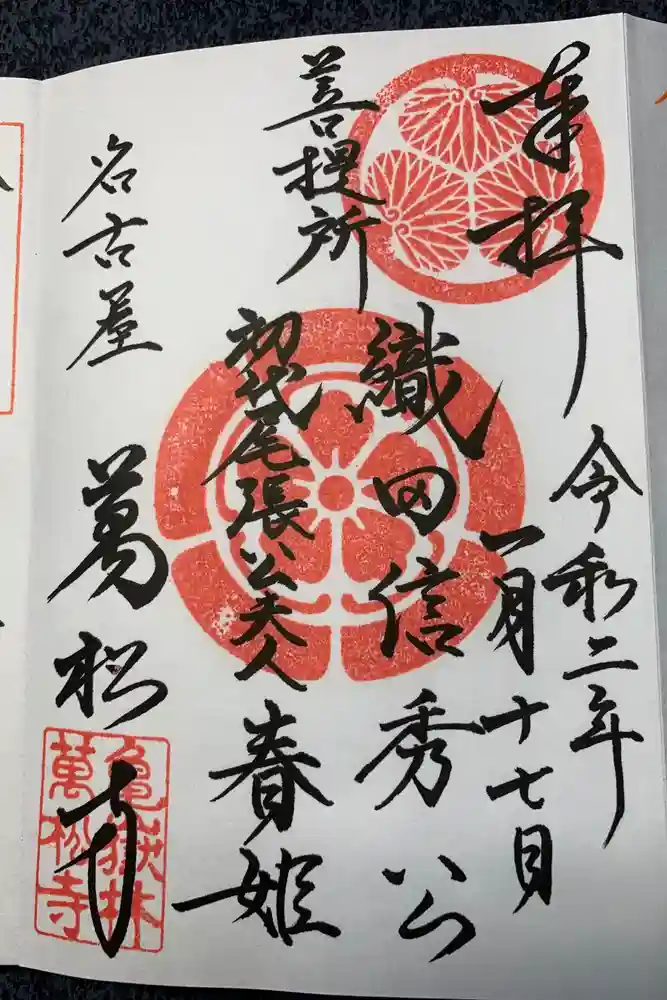 奉拝
令和二年
一月十七日
織田信秀公
菩提所
初代尾張公夫人
春姫
名古屋
萬松寺
亀嶽林
萬松寺